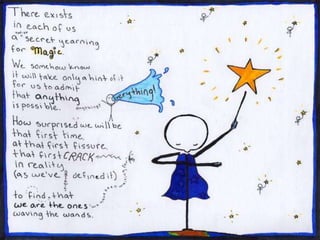 There exists
in each of us
a secret yearning
for magic.
We somehow know
it will take only a hint of it
for us to admit
that anything
is possible.
anything?
everything!
How surprised we will be
that first time
at that first fissure
that first CRACK
in reality
(as we've defined it)
to find, that
we are the ones
waving the wands.